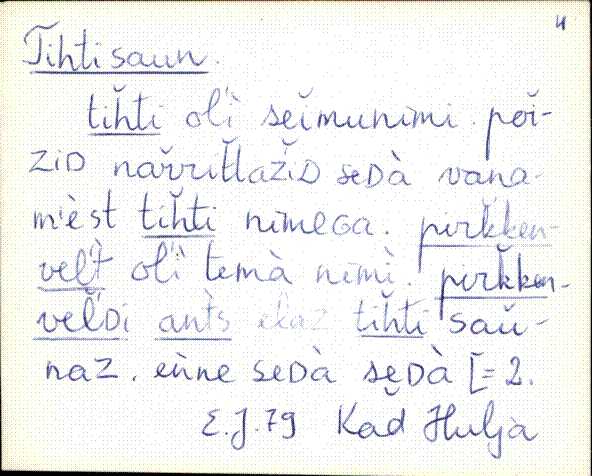 4
Tihtisaun.
tih̆ti oĺì sĕimunìmì. pŏi-
ZiD năvvrĭtlažìD seDà vana-
mèst tih̆ti nìmeGa. pirk̆ken-
velt oĺì temà nimì. pirk̆ken-
velDi ants elaz tih̆ti său-
naz. ènne seDà sęDà [= 2.
E.J.79 Kad Hulja